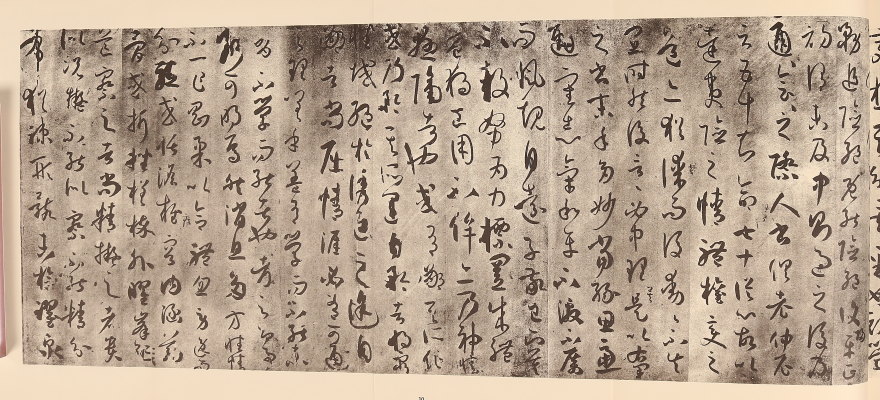 務追險絕既能險絕復歸平正
初謂未及中則過之後乃
通會之際人書俱老仲尼
云五十知命七十從心故以
達夷險之情體權變之
道亦猶謀而後動動不失
宜時然後言言必中理矣是以右軍
之書末年多妙當緣思慮
通審志氣和平不激不厲
而風規自遠子敬已下莫
不鼓努為力標置成體
豈獨工用不侔亦乃神情
懸隔者也或有鄙其所作
或乃矜其所運自矜者將窮
性域絕於誘進之途自
鄙者尚屈情涯必有可通
之理嗟乎蓋有學而不能未有
不學而能者也考之即事
斷可明焉然消息多方性情
不一乍剛柔以合體忽勞逸
而分驅或恬澹雍容內涵筋
骨或折挫槎枿外曜鋒芒
故察之者尚精擬之者貴
似況擬不能似察不能精分
布猶疏形骸未檢躍泉